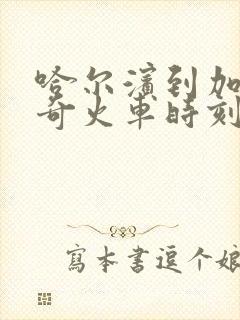 哈尔滨到加
奇火車時刻
寫本書逗个娘